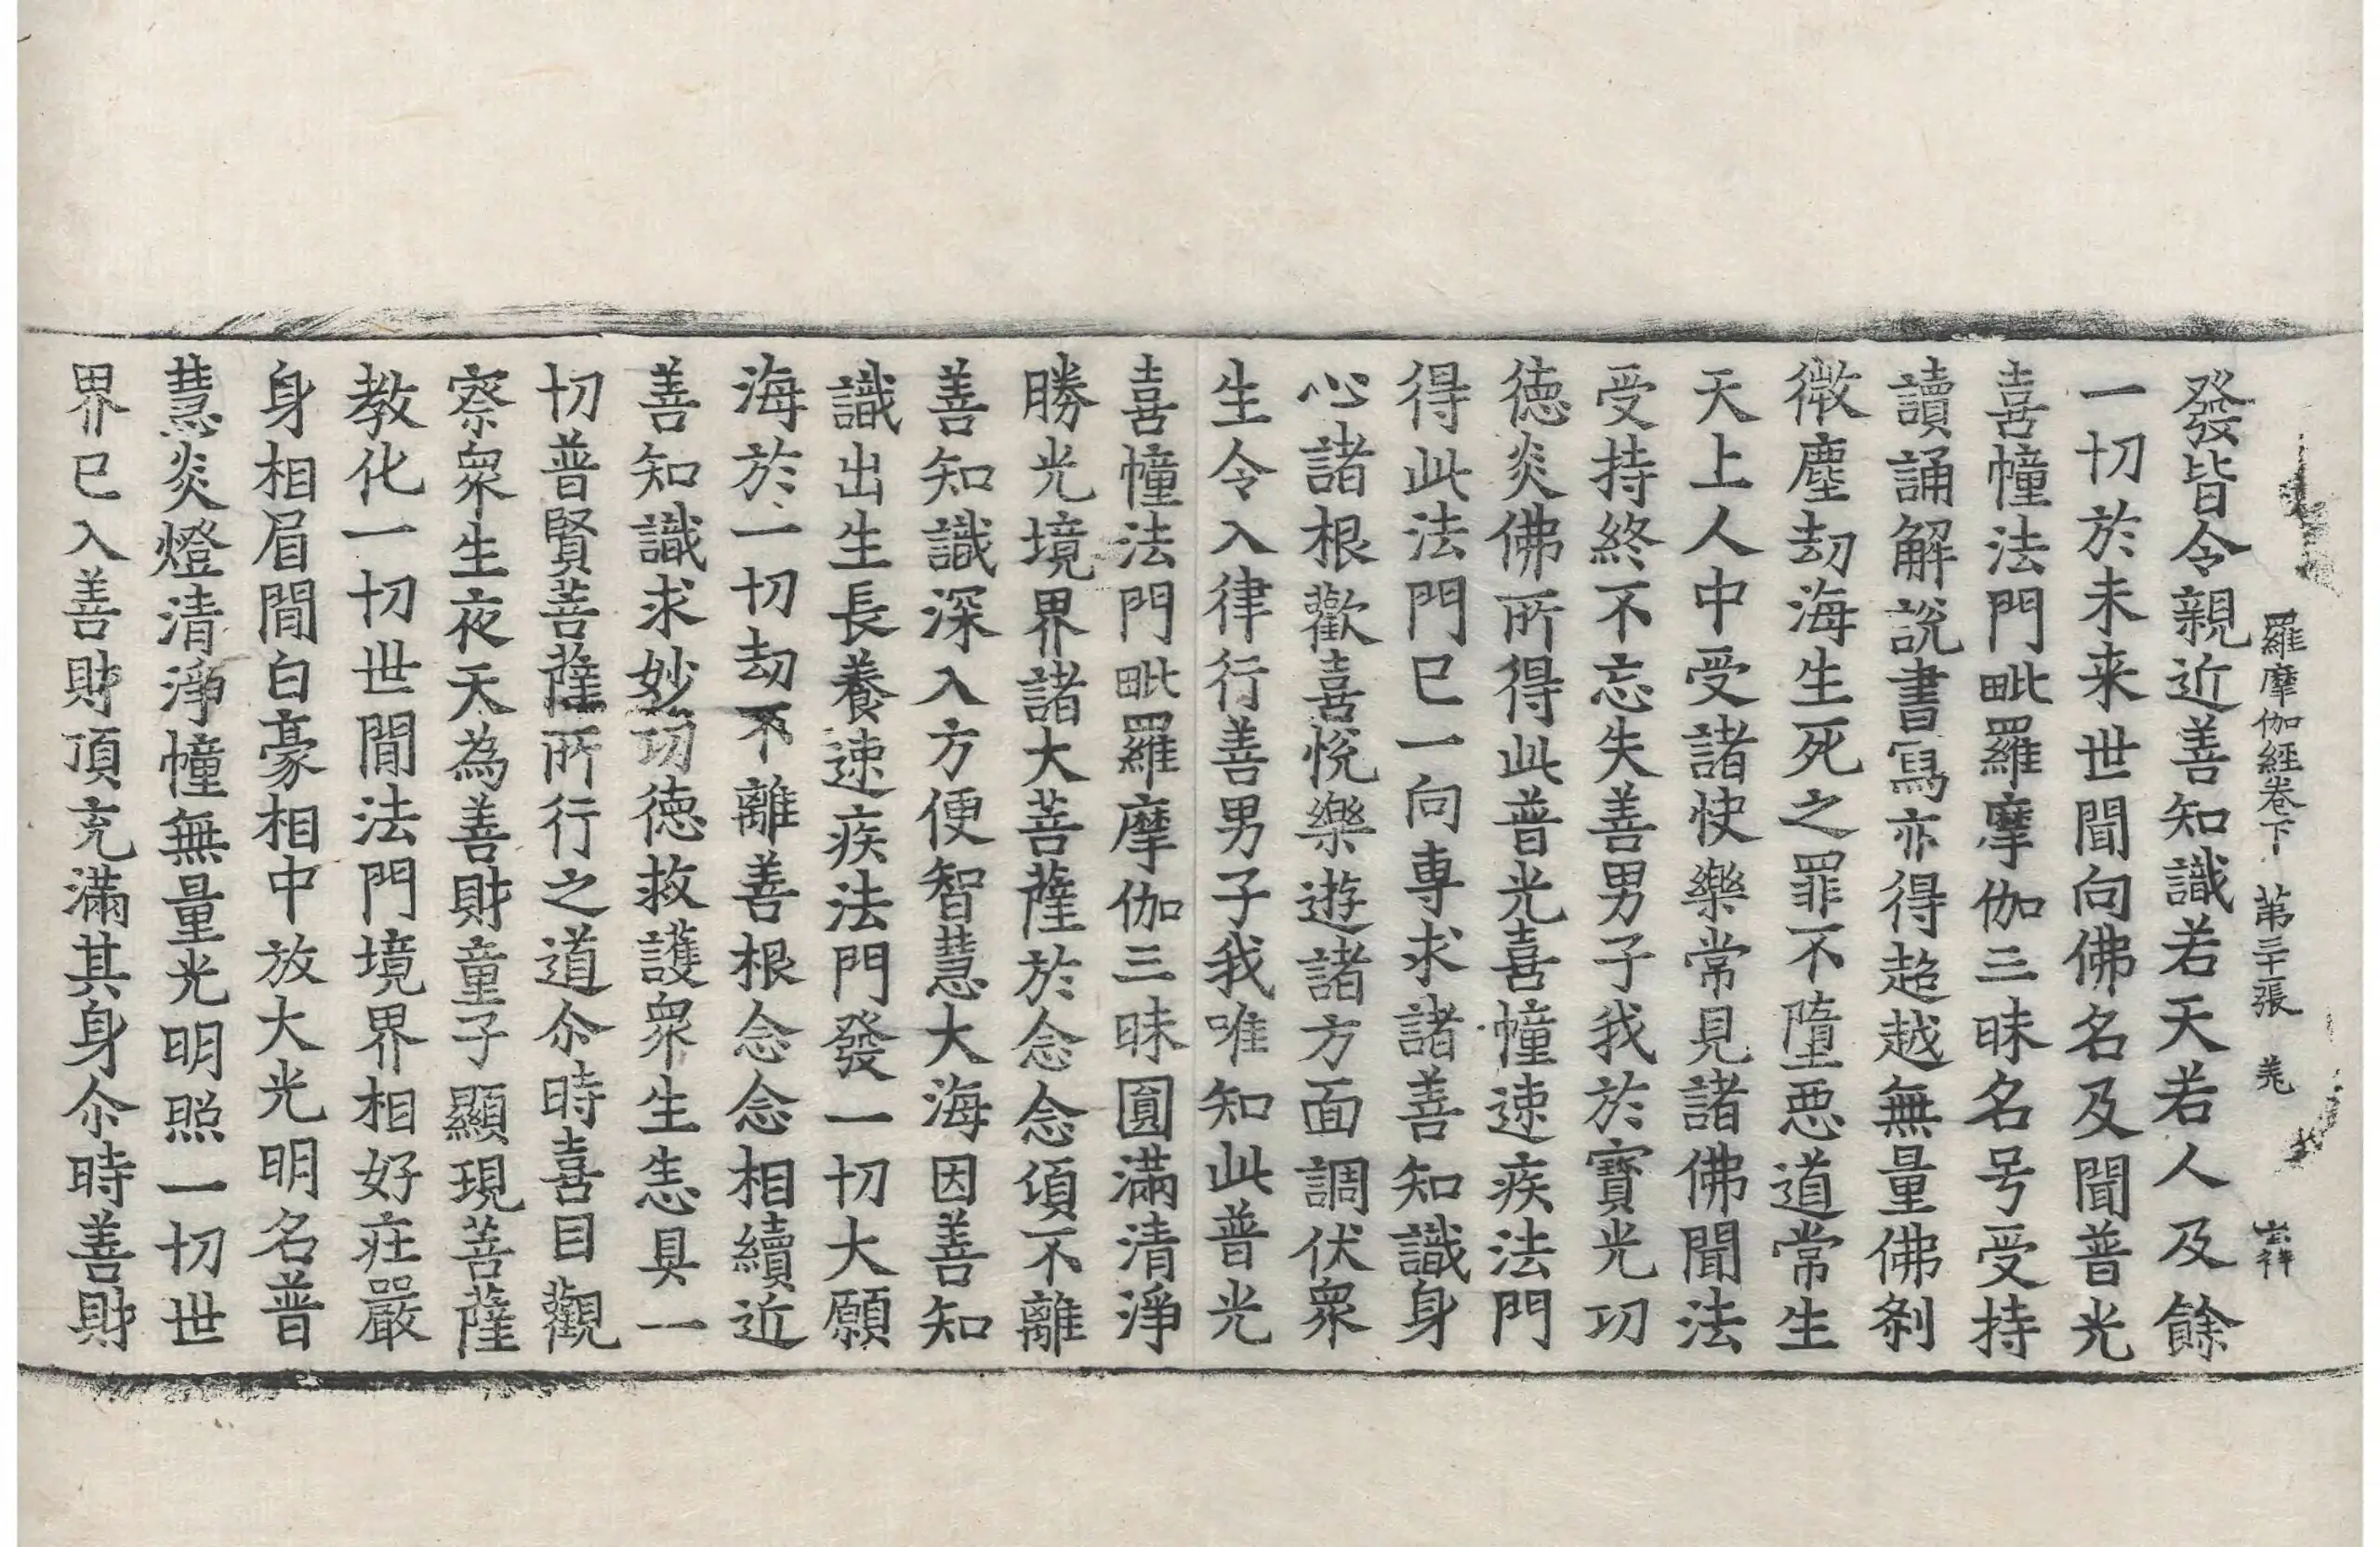 羅摩伽經卷下 苐三十張 羗
發皆令親近善知識若天若人及餘
一切於未来世聞向佛名及聞普光
喜幢法門毗羅摩伽三昧名号受持
讀誦解說書寫亦得超越無量佛刹
微塵劫海生死之罪不墮惡道常生
天上人中受諸快樂常見諸佛聞法
受持終不忘失善男子我於寶光功
德炎佛所得此普光喜幢速疾法門
得此法門已一向專求諸善知識身
心諸根歡喜悅樂遊諸方面調伏衆
生令入律行善男子我唯知此普光
喜幢法門毗羅摩伽三昧圓滿清淨
勝光境界諸大菩薩於念念頃不離
善知識深入方便智慧大海因善知
識出生長養速疾法門發一切大願
海於一切劫不離善根念念相續近
善知識求妙功德救護衆生悉具一
切普賢菩薩所行之道尒時喜目觀
察衆生夜天為善財童子顯現菩薩
教化一切世間法門境界相好莊嚴
身相眉間白豪相中放大光明名普
慧炎燈清淨幢無量光明照一切世
界已入善財頂充滿其身尒時善財